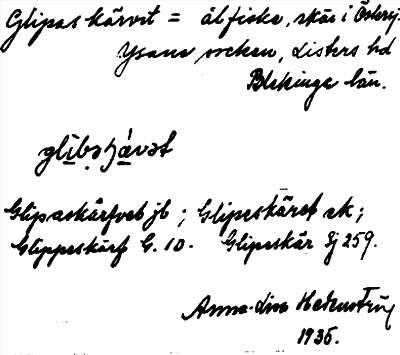 Glipaskärvet = ålfiske, skär i Östersj.
Ysane socken, Listers hd
Blekinge län.
glìbəʂʜávət
Glipaskärfvet jb; Glipeskäret ek;
Glippeskärf G. 10. Glipeskär Sj 259.
Anna-Lisa
1935.